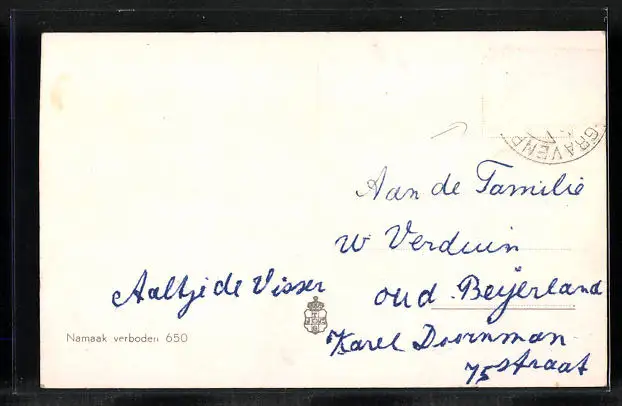 GRAVENP
Aan de Familie
W Verduin
Aaltje de Visser
oud Beijerland
Karel Doornman
75 straat
Namaak verboden 650